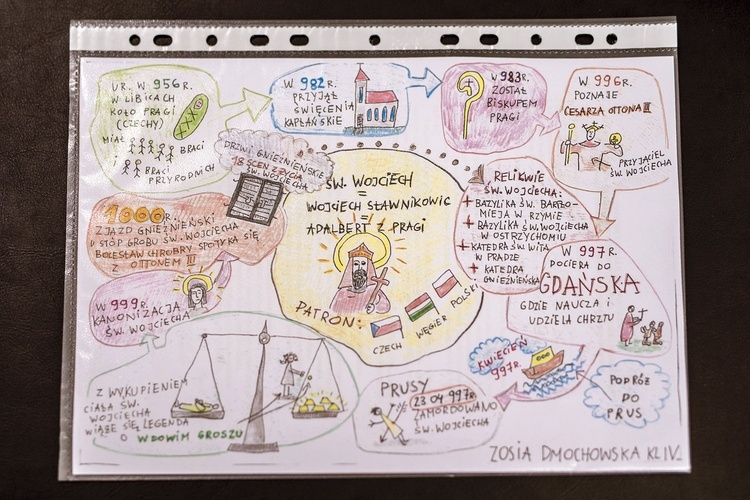 UR. W 956R.
W LIBICACH
KOŁO PRAGI
(CZECHY)
MIAŁ
BRACI
I
BRACI
PRZYRODNICH
W 982R.
PRZYJĄŁ
ŚWIĘCENIA
KAPŁAŃSKIE
W 983R.
ZOSTAŁ
BISKUPEM
PRAGI
W 996R.
POZNAJE
CESARZA OTTONA III
PRZYJACIEL
ŚW. WOJCIECHA
DRZWI GNIEŹNIEŃSKIE
18 SCEN Z ŻYCIA
ŚW. WOJCIECHA
ŚW. WOJCIECH
=
WOJCIECH SŁAWNIKOWIC
=
ADALBERT Z PRAGI
PATRON:
CZECH
WĘGIER
POLSKI
RELIKWIE
ŚW. WOJCIECHA:
+ BAZYLIKA ŚW. BARTŁO-
MIEJA W RZYMIE
+ BAZYLIKA ŚW. WOJCIECHA
W OSTRZYCHOMIU
+ KATEDRA ŚW. WITA
W PRADZE
+ KATEDRA
GNIEŹNIEŃSKA
1000R.
ZJAZD GNIEŹNIEŃSKI
U STÓP GROBU ŚW. WOJCIECHA
BOLESŁAW CHROBRY SPOTYKA SIĘ
Z OTTONEM III
W 997R.
DOCIERA DO
GDAŃSKA
GDZIE NAUCZA I
UDZIELA CHRZTU
W 999R.
KANONIZACJA
ŚW. WOJCIECHA
Z WYKUPIENIEM
CIAŁA ŚW.
WOJCIECHA
WIĄŻE SIĘ LEGENDA
O WDOWIM GROSZU
KWIECIEŃ
997R.
PODRÓŻ
DO
PRUS
PRUSY
23.04.997R.
ZAMORDOWANO
ŚW. WOJCIECHA
ZOSIA DMOCHOWSKA KL IV